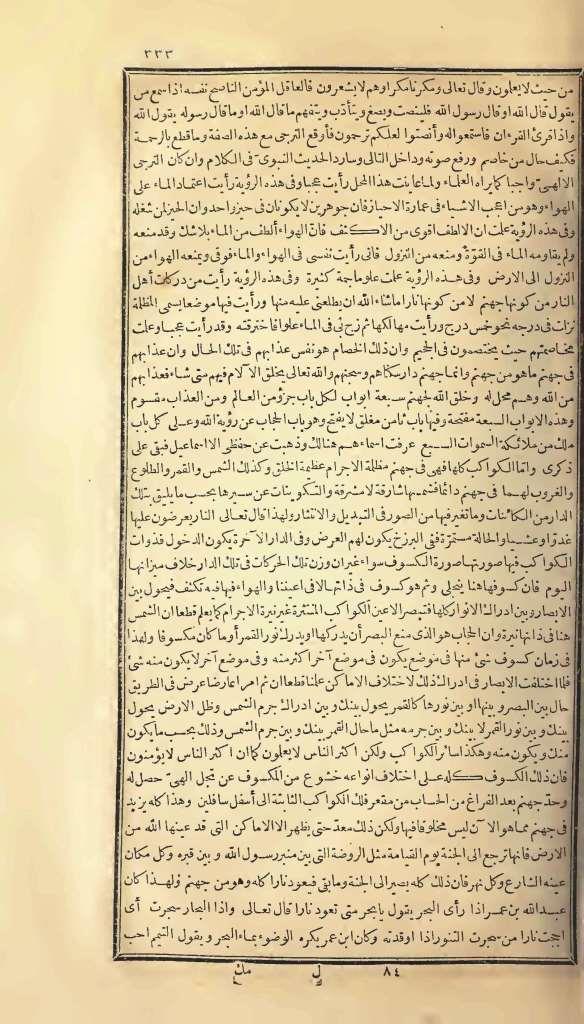 ٣٣٣
من حيث لا يعلمون وقال تعالى ومكرنا مكرا وهم لا يشعرون فالعاقل المؤمن الناصح نفسه اذا سمع من
يقول قال الله او قال رسول الله فلينصت ويصغ ويتأدب ويتفهم ما قال الله او ما قال رسوله يقول الله
واذا قرئ القرءان فاستمعوا له وأنصتوا لعلكم ترحمون فأوقع الترجى مع هذه الصفة وما قطع بالرحمة
فكيف حال من خاصم ورفع صوته وداخل التالى وسارد الحديث النبوى فى الكلام وان كان الترجى
الالهىّ واجبا كما يراه العلماء ولما عاينت هذا المحل رأيت عجبا وفى هذه الرؤية رأيت اعتماد الماء على
الهواء وهو من اعجب الاشياء فى عمارة الاحياز فان جوهرين لا يكونان فى حيز واحد وان الحيز لمن شغله
وفى هذه الرؤية علمت ان الالطف اقوى من الاكثف فانّ الهواء ألطف من الماء بلا شك وقد منعه
ولم يقاومه الماء فى القوّة ومنعه من النزول فانى رأيت نفسى فى الهواء والماء فوقى ويمنعه الهواء من
النزول الى الارض وفى هذه الرؤية علمت علوما جمة كثيرة وفى هذه الرؤية رأيت من دركات أهل
النار من كونها جهنم لا من كونها نارا ما شاء الله ان يطلعنى عليه منها ورأيت فيها موضعا يسمى المظلمة
نزلت فى درجه نحو خمس درج ورأيت مهالكها ثم زج بى فى الماء علوا فاخترقته وقد رأيت عجبا وعلمت
مخاصمتهم حيث يختصمون فى الجحيم وان ذلك الخصام هو نفس عذابهم فى تلك الحال وان عذابهم
فى جهنم ما هو من جهنم وانما جهنم دار سكناهم وسجنهم والله تعالى يخلق الآلام فيهم متى شاء فعذابهم
من الله وهم محل له وخلق الله لجهنم سبعة ابواب لكل باب جزؤ من العالم ومن العذاب مقسوم
وهذه الابواب السبعة مفتحة وفيها باب ثامن مغلق لا يفتح وهو باب الحجاب عن رؤية الله وعلى كل باب
ملك من ملائكة السموات السبع عرفت اسماءهم هنالك وذهبت عن حفظى الا اسماعيل فبقى على
ذكرى واما الكواكب كلها فهى فى جهنم مظلمة الاجرام عظيمة الخلق وكذلك الشمس والقمر والطلوع
والغروب لهما فى جهنم دائما فشمسها شارقة لا مشرقة والتكوينات عن سيرها بحسب ما يليق بتلك
الدار من الكائنات وما تغير فيها من الصور فى التبديل والانتثار ولهذا قال تعالى النار يعرضون عليها
غدوّا وعشيا والحالة مستمرّة ففى البرزخ يكون لهم العرض وفى الدار الآخرة يكون الدخول فذوات
الكواكب فيها صورتها صورة الكسوف سواء غير ان وزن تلك الحركات فى تلك الدار خلاف ميزانها
اليوم فان كسوفها هنا ينجلى وثم هو كسوف فى ذاتها لا فى اعيننا والهواء فيها فيه تكثف فيحول بين
الابصار وبين ادراك الانوار كلها فتبصر الاعين الكواكب المنتثرة غير نيرة الاجرام كما يعلم قطعا ان الشمس
هنا فى ذاتها نيرة وان الحجاب هو الذى منع البصر أن يدركها او يدرك نور القمر أو ما كان مكسوفا ولهذا
فى زمان كسوف شئ منها فى موضع يكون فى موضع آخر اكثر منه وفى موضع آخر لا يكون منه شئ
فلما اختلفت الابصار فى ادراك ذلك لاختلاف الاماكن علمنا قطعا ان ثم امرا عارضا عرض فى الطريق
حال بين البصر وبينها او بين نورها كالقمر يحول بينك وبين ادراك جرم الشمس وظل الارض يحول
بينك وبين نور القمر لا بينك وبين جرمه مثل ما حال القمر بينك وبين جرم الشمس وذلك بحسب ما يكون
منك ويكون منه وهكذا سائر الكواكب ولكن اكثر الناس لا يعلمون كما ان اكثر الناس لا يؤمنون
فان ذلك الكسوف كله على اختلاف انواعه خشوع من المكسوف عن تجل الهىّ حصل له
وحدّ جهنم بعد الفراغ من الحساب من مقعر فلك الكواكب الثابتة الى أسفل سافلين وهذا كله يزيد
فى جهنم مما هو الآن ليس مخلوقا فيها ولكن ذلك معدّ حتى يظهر الا الاماكن التى قد عينها الله من
الارض فانها ترجع الى الجنة يوم القيامة مثل الروضة التى بين منبر رسول الله وبين قبره وكل مكان
عينه الشارع وكل نهر فان ذلك كله يصير الى الجنة وما بقى فيعود نارا كله وهو من جهنم ولهذا كان
عبد الله بن عمر اذا رأى البحر يقول يا بحر متى تعود نارا قال تعالى واذا البحار سجرت أى
اججت نارا من سجرت التنور اذا اوقدته وكان ابن عمر يكره الوضوء بماء البحر ويقول التيمم احب
٨٤ ل مك